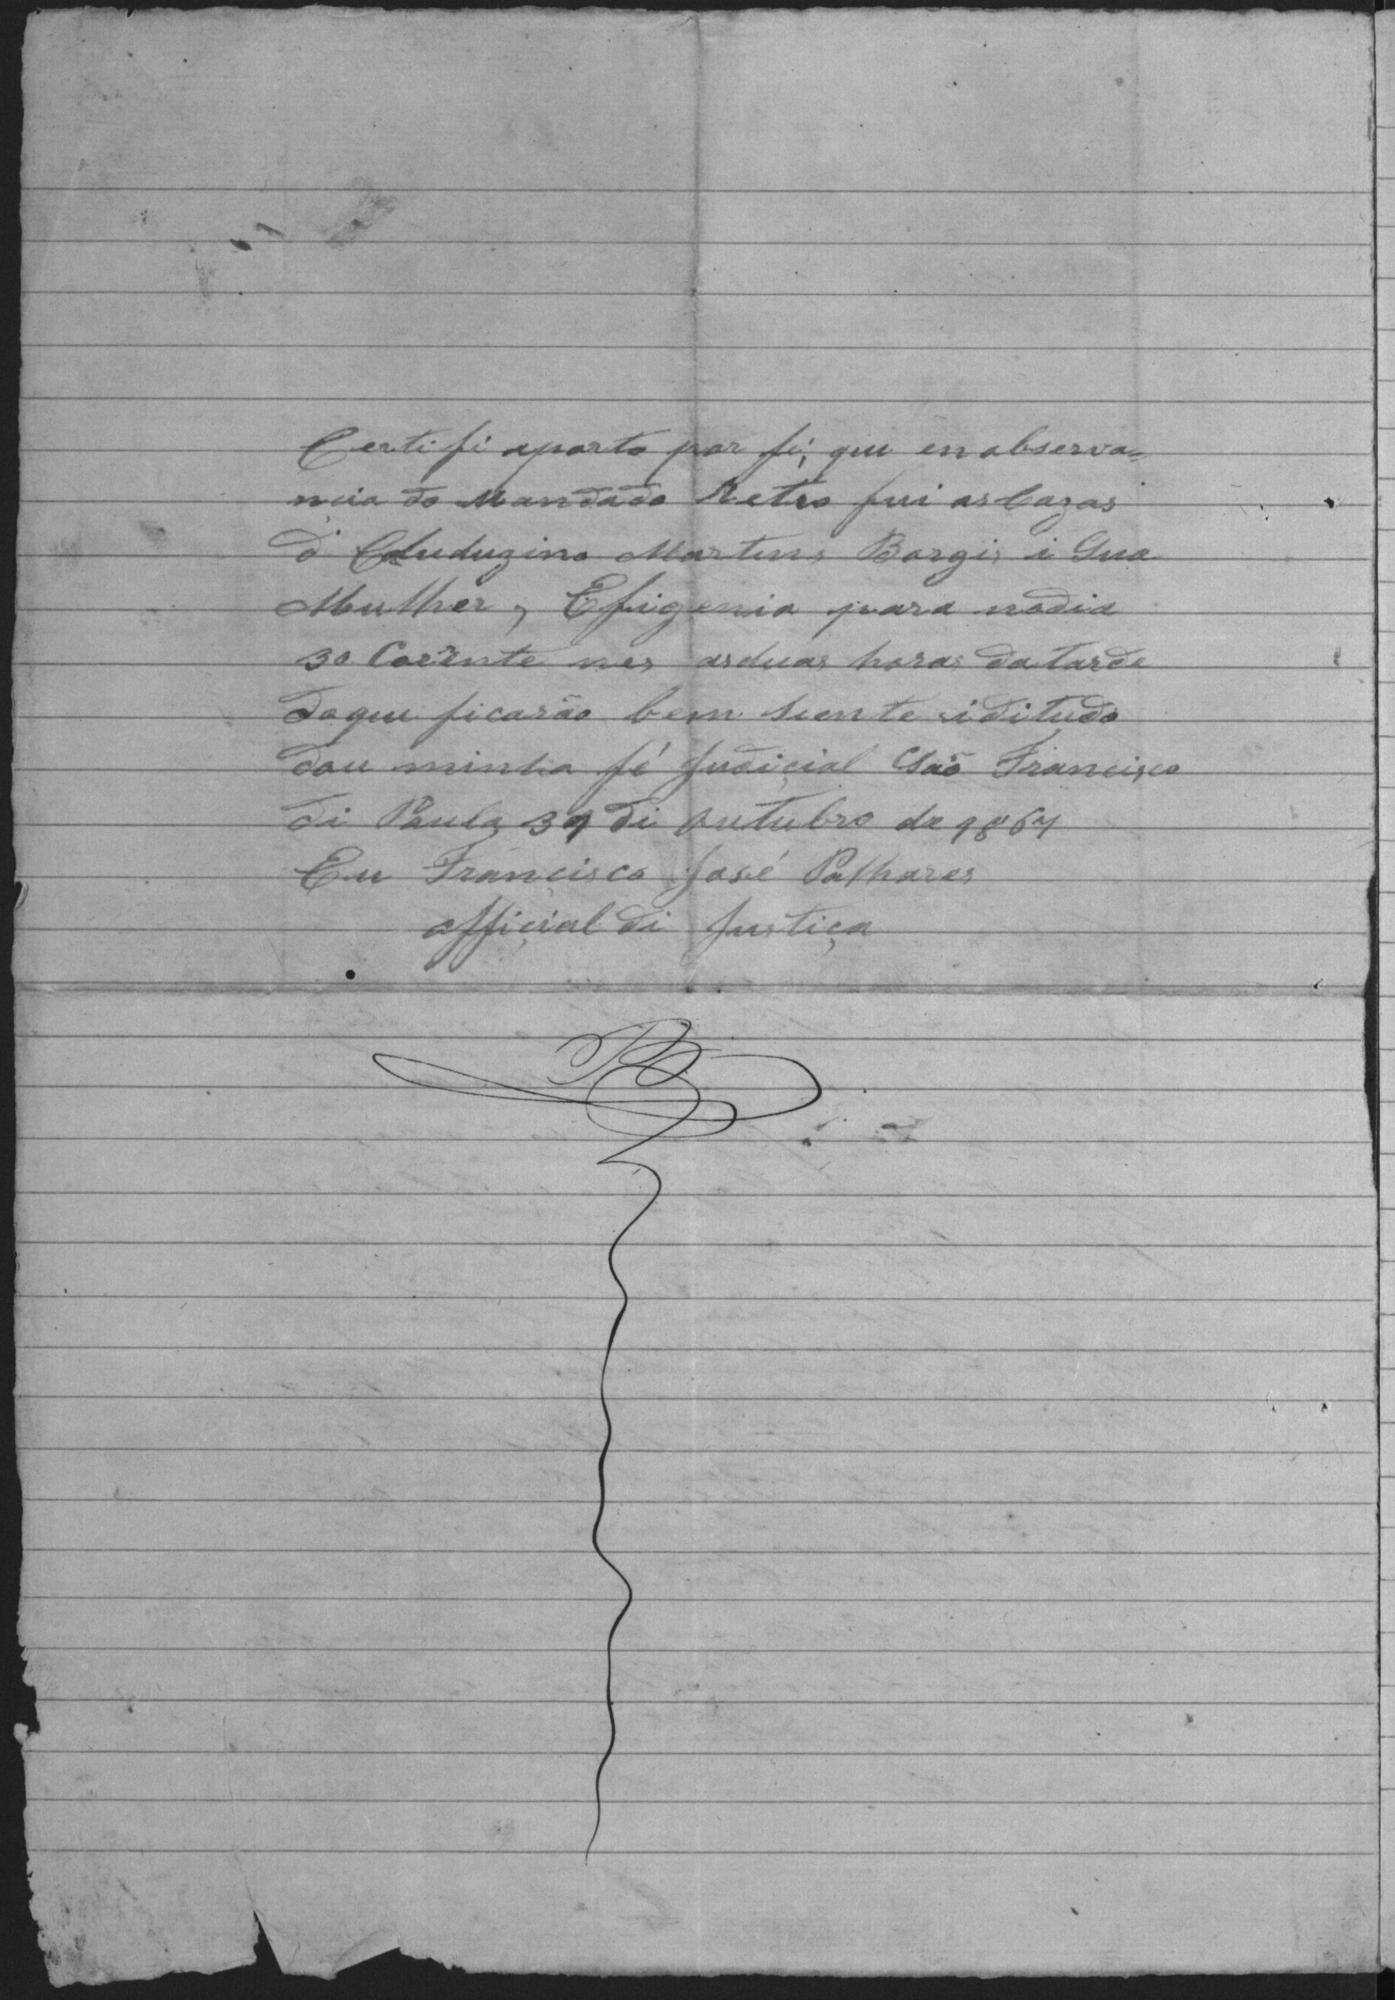 Certifi aporto por fé, que en observa=
ncia do Mandado Retro fui as Cazas
d' Cluduzino Martins Borgis i Sua
Mulher, Efigenia para nodia
30 Corente mes asduas horas datarde
doque ficarão bem siente iditudo
dou minha fé Judicial São Francisco
di Paula di outubro de 1867
Eu Francisco José Palhares
official di Justiça